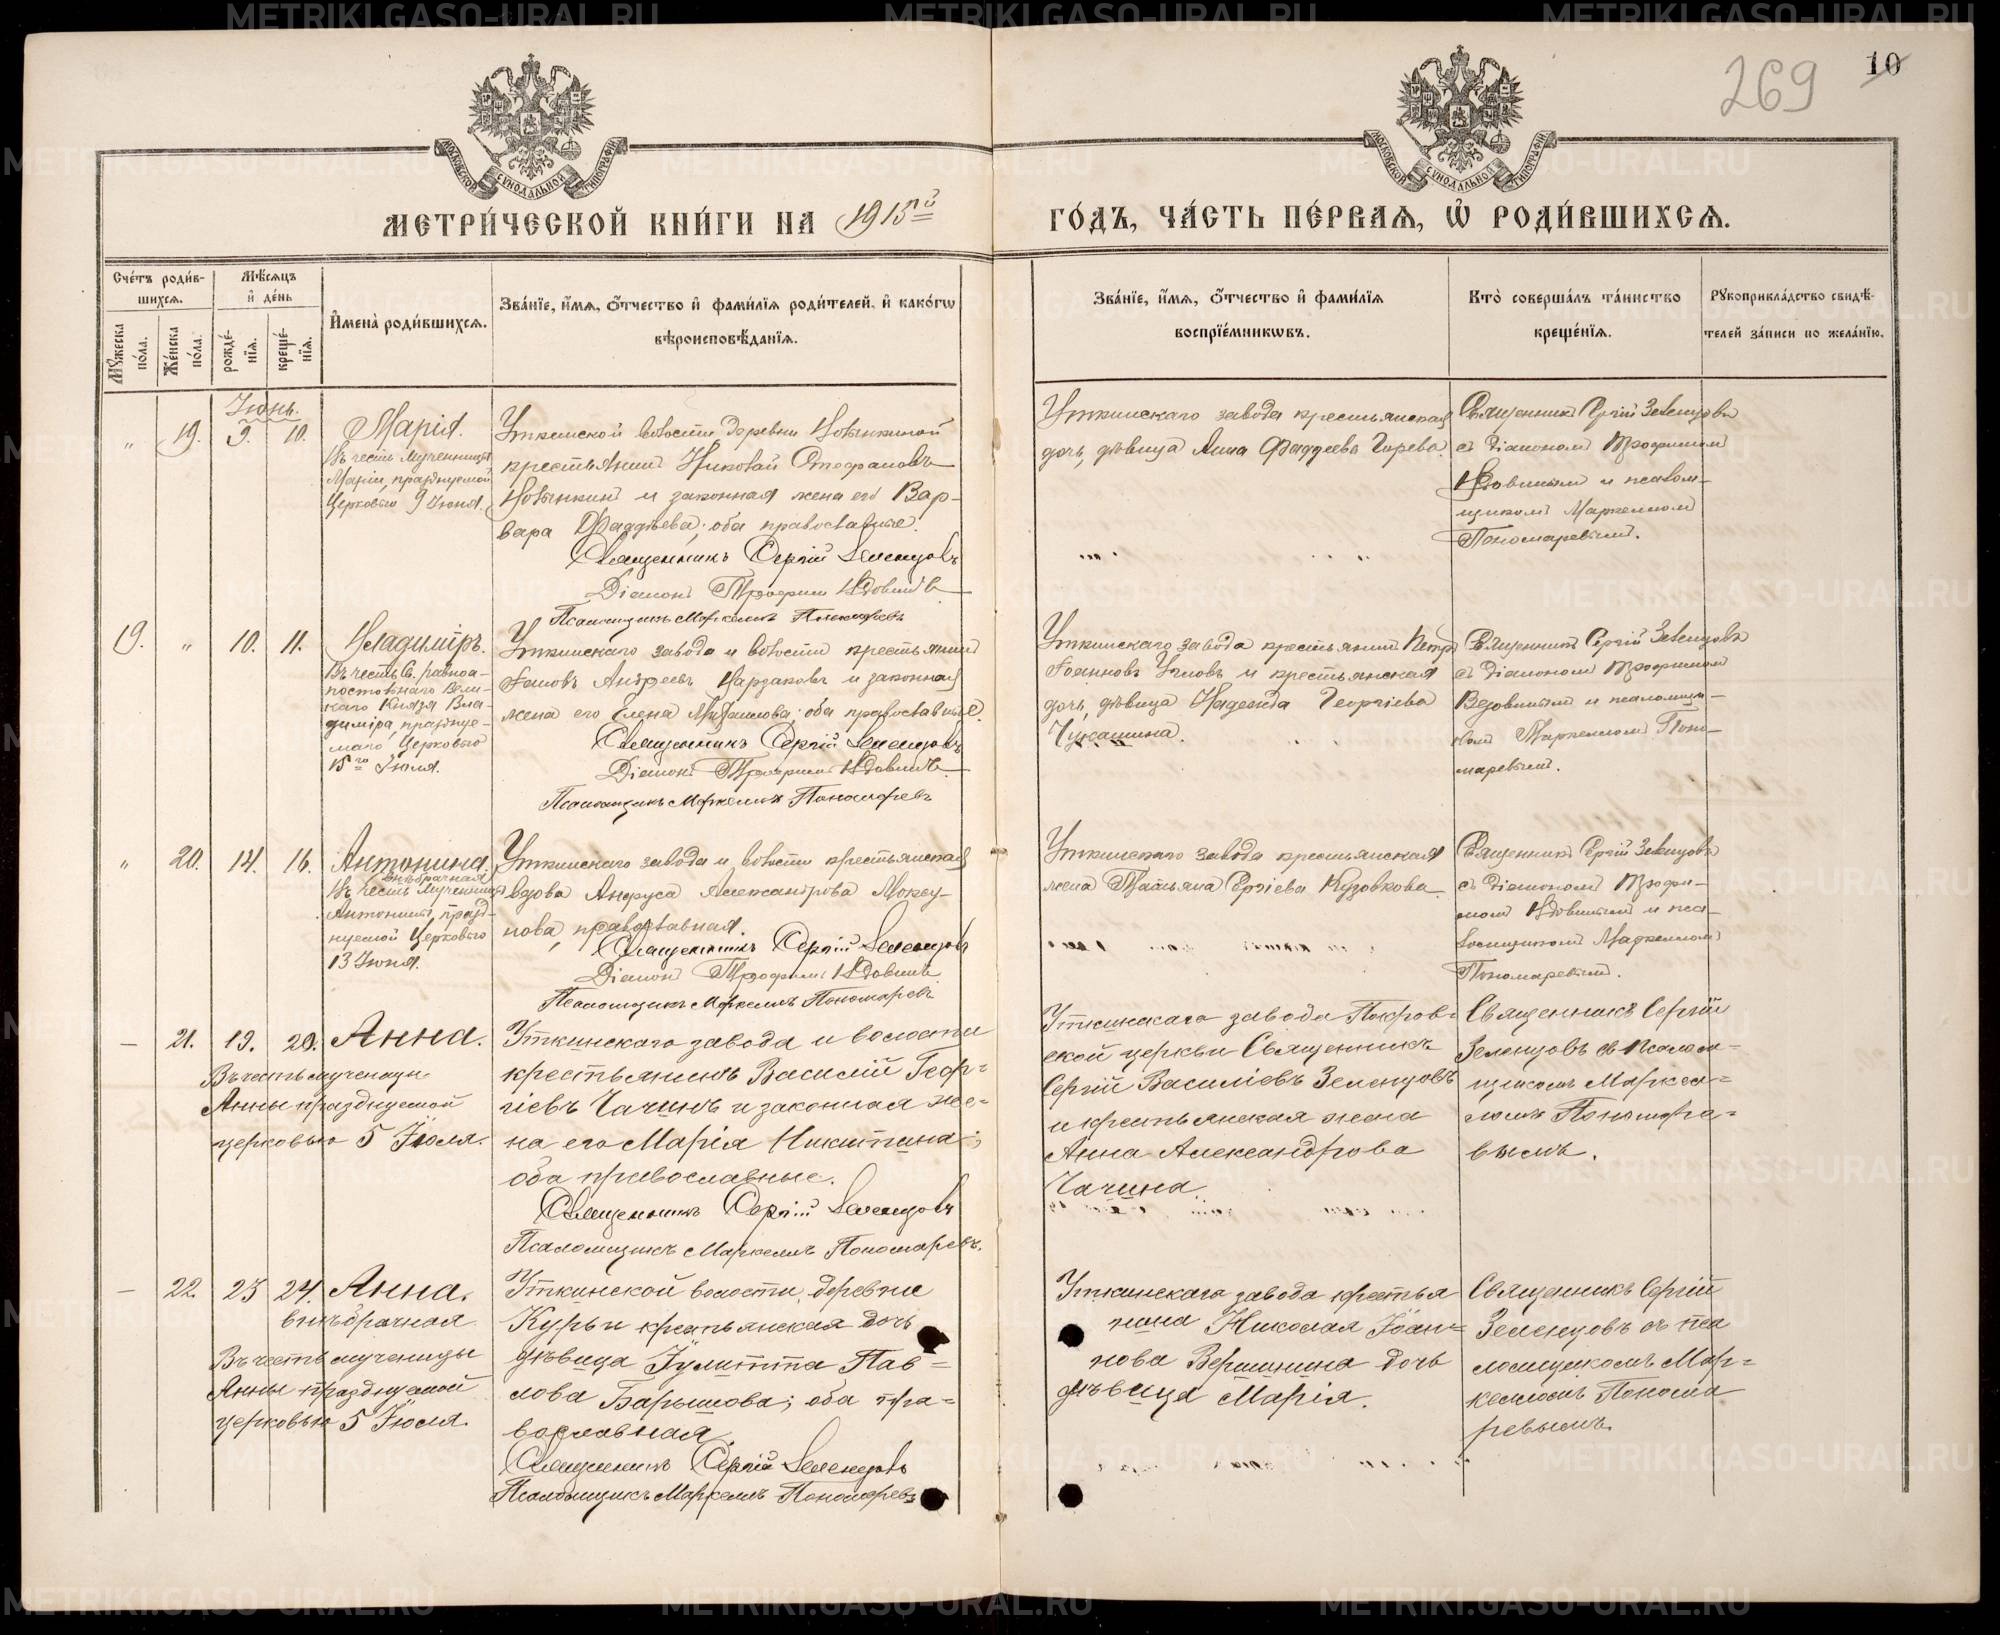 269
10
МЕТРИ́ЧЕСКОЙ КНИ́ГИ НА 1915й
ГО́ДЪ, ЧА́СТЬ ПЕ́РВАѦ, Ѡ҆ РОДИ́ВШИХСѦ.
Сче́тъ роди́в-
шихсѧ.
Мꙋ́жеска по́ла.
Же́нска по́ла.
Мѣ́сѧцъ и҆ де́нь
рожде́-нїѧ.
креще́-нїѧ.
И҆мена̀ роди́вшихсѧ.
Зва́нїе, и҆́мѧ, ѻ҆́тчество и҆ фами́лїѧ роди́телей, и҆ како́гѡ
вѣроисповѣ́данїѧ.
Зва́нїе, и҆́мѧ, ѻ҆́тчество и҆ фами́лїѧ
воспрїе́мникѡвъ.
Кто̀ соверша́лъ та́инство
креще́нїѧ.
Рꙋкоприкла́дство свидѣ́-
телей за́писи по жела́нїю.
Іюнь.
„ 19. 9. 10. Марія.
Въ честь мученицы
Маріи, празднуемой
Церковью 9 Іюня.
Уткинской волости деревни
крестьянинъ Николай Стефановъ
и законная жена его Вар-
вара Фаддѣева; оба православные.
Священникъ Сергій Зеленцовъ
Діаконъ Трофимъ
Псаломщикъ Маркеллъ Пономаревъ
Уткинскаго завода крестьянская
дочь, дѣвица Анна Фаддеева Гирева.
Священникъ Сергій Зеленцовъ
съ Діакономъ Трофимомъ
Вдовинымъ и псалом-
щикомъ Маркелломъ
Пономаревымъ.
19. „ 10. 11. Владиміръ.
Въ честь Св. равноа-
постольнаго Вели-
каго Князя Вла-
диміра, праздуе-
маго Церковью
15го Іюля.
Уткинскаго завода и волости крестьянинъ
Андреевъ и законная
жена его Елена; оба православные.
Священникъ Сергій Зеленцовъ
Діаконъ Трофимъ
Псаломщикъ Маркеллъ Пономаревъ
Уткинскаго завода крестьянинъ Петръ
Іоанновъ и крестьянская
дочь, дѣвица Надежда Георгіева
Священникъ Сергій Зеленцовъ
съ Діакономъ Трофимомъ
Вдовинымъ и псаломщи-
комъ Маркелломъ Поно-
маревымъ.
„ 20. 14. 16. Антонина.
внѣбрачная
Въ честь Мученицы
Антонины, празд-
нуемой Церковью
13 Іюня.
Уткинскаго завода и волости крестьянская
вдова Александрова
православная.
Священникъ Сергій Зеленцовъ
Діаконъ Трофимъ
Псаломщикъ Маркеллъ Пономаревъ
Уткинскаго завода крестьянская
жена Татьяна Сергіева Кузовкова.
Священникъ Сергій Зеленцовъ
съ Діакономъ Трофи-
момъ Вдовинымъ и пса-
ломщикомъ Маркелломъ
Пономаревымъ.
— 21. 19. 20. Анна.
Въ честь мученицы
Анны празднуемой
церковью 5 Іюля.
Уткинскаго завода и волости
крестьянинъ Василій Геор-
гіевъ Чачинъ и законная же-
на его Марія Никитина;
оба православные.
Священникъ Сергій Зеленцовъ
Псаломщикъ Маркеллъ Пономаревъ.
Уткинскаго завода Покров-
ской церкви Священникъ
Сергій Василіевъ Зеленцовъ
и крестьянская жена
Анна Александрова
Чачина.
Священникъ Сергій
Зеленцовъ съ Псалом-
щикомъ Маркел-
ломъ Пономаре-
вымъ.
— 22. 23 24. Анна.
внѣбрачная
Въ честь мученицы
Анны празднуемой
церковью 5 Іюля.
Уткинской волости, деревни
Курьи крестьянская дочь
дѣвица Іулитта Пав-
лова Барышова; оба пра-
вославная.
Священникъ Сергій Зеленцовъ
Псаломщикъ Маркеллъ Пономаревъ
Уткинскаго завода крестья
нина Николая Іоан-
нова Вершинина дочь
дѣвица Марія.
Священникъ Сергій
Зеленцовъ съ пса
ломщикомъ Мар-
келломъ Понома
ревымъ.